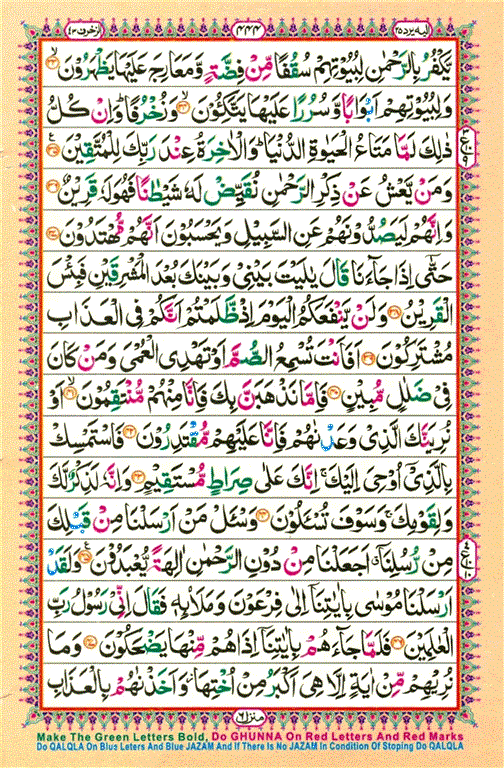 الیه یرد ۲۵
۴۴۴
زخرف ۴۳
يَكْفُرُ بِالرَّحْمٰنِ لِبُيُوْتِهِمْ سُقُفًا مِّنْ فِضَّةٍ وَّمَعَارِجَ عَلَيْهَا يَظْهَرُوْنَ ۙ۳۳
وَلِبُيُوْتِهِمْ اَبْوَابًا وَّسُرُرًا عَلَيْهَا يَتَّكِـُٔوْنَ ۙ۳۴ وَزُخْرُفًا ؕ وَاِنْ كُلُّ
ذٰلِكَ لَمَّا مَتَاعُ الْحَيٰوةِ الدُّنْيَا ؕ وَالْاٰخِرَةُ عِنْدَ رَبِّكَ لِلْمُتَّقِيْنَ ۳۵
وَمَنْ يَّعْشُ عَنْ ذِكْرِ الرَّحْمٰنِ نُقَيِّضْ لَهٗ شَيْطٰنًا فَهُوَ لَهٗ قَرِيْنٌ ۳۶
وَاِنَّهُمْ لَيَصُدُّوْنَهُمْ عَنِ السَّبِيْلِ وَيَحْسَبُوْنَ اَنَّهُمْ مُّهْتَدُوْنَ ۳۷
حَتّٰۤى اِذَا جَآءَنَا قَالَ يٰلَيْتَ بَيْنِيْ وَبَيْنَكَ بُعْدَ الْمَشْرِقَيْنِ فَبِئْسَ
الْقَرِيْنُ ۳۸ وَلَنْ يَّنْفَعَكُمُ الْيَوْمَ اِذْ ظَّلَمْتُمْ اَنَّكُمْ فِي الْعَذَابِ
مُشْتَرِكُوْنَ ۳۹ اَفَاَنْتَ تُسْمِعُ الصُّمَّ اَوْ تَهْدِي الْعُمْيَ وَمَنْ كَانَ
فِيْ ضَلٰلٍ مُّبِيْنٍ ۴۰ فَاِمَّا نَذْهَبَنَّ بِكَ فَاِنَّا مِنْهُمْ مُّنْتَقِمُوْنَ ۙ۴۱ اَوْ
نُرِيَنَّكَ الَّذِيْ وَعَدْنٰهُمْ فَاِنَّا عَلَيْهِمْ مُّقْتَدِرُوْنَ ۴۲ فَاسْتَمْسِكْ
بِالَّذِيْۤ اُوْحِيَ اِلَيْكَ ۚ اِنَّكَ عَلٰى صِرَاطٍ مُّسْتَقِيْمٍ ۴۳ وَاِنَّهٗ لَذِكْرٌ لَّكَ
وَلِقَوْمِكَ ۚ وَسَوْفَ تُسْـَٔلُوْنَ ۴۴ وَسْـَٔلْ مَنْ اَرْسَلْنَا مِنْ قَبْلِكَ
مِنْ رُّسُلِنَاۤ اَجَعَلْنَا مِنْ دُوْنِ الرَّحْمٰنِ اٰلِهَةً يُّعْبَدُوْنَ ۴۵ وَلَقَدْ
اَرْسَلْنَا مُوْسٰى بِاٰيٰتِنَاۤ اِلٰى فِرْعَوْنَ وَمَلَا۟ئِهٖ فَقَالَ اِنِّيْ رَسُوْلُ رَبِّ
الْعٰلَمِيْنَ ۴۶ فَلَمَّا جَآءَهُمْ بِاٰيٰتِنَاۤ اِذَا هُمْ مِّنْهَا يَضْحَكُوْنَ ۴۷ وَمَا
نُرِيْهِمْ مِّنْ اٰيَةٍ اِلَّا هِيَ اَكْبَرُ مِنْ اُخْتِهَا ؗ وَاَخَذْنٰهُمْ بِالْعَذَابِ
منزل ۶
Make The Green Letters Bold, Do GHUNNA On Red Letters And Red Marks
Do QALQLA On Blus Leters And Blue JAZAM And If There Is No JAZAM In Condition Of Stoping Do QALQLA